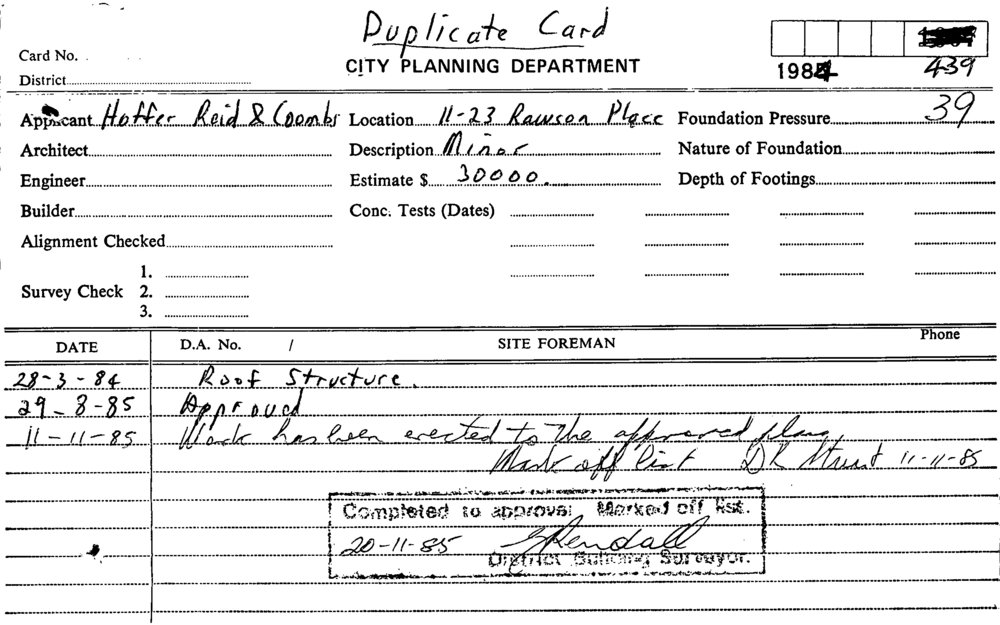 Duplicate Card
Card No.
CITY PLANNING DEPARTMENT
1984 439
District
Applicant Hoffer Reid & Coombs Location 11-23 Rawson Place Foundation Pressure 39
Architect Description Minor Nature of Foundation
Engineer Estimate $ 30000. Depth of Footings
Builder Conc. Tests (Dates)
Alignment Checked
1.
Survey Check 2.
3.
DATE D.A. No. / SITE FOREMAN Phone
28-3-84 Roof Structure.
29-8-85 Approved
11-11-85 Work has been erected to the approved plans
Mark off list DR 11-11-85
Completed to approval Marked off list.
20-11-85 Kendall
District Building Surveyor.